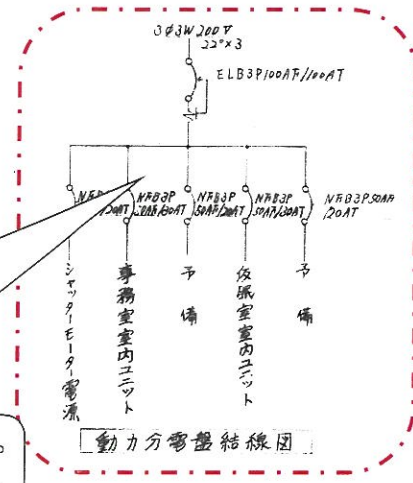 3φ3W200V
22°×3
ELB3P100AF/100AT
NFB3P
/20AT
NFB3P
/30AT
NFB3P
50AF/20AT
NFB3P
50AF/30AT
NFB3P50AF
/20AT
シャッターモーター電源
事務室室内ユニット
予備
仮眠室室内ユニット
予備
動力分電盤結線図